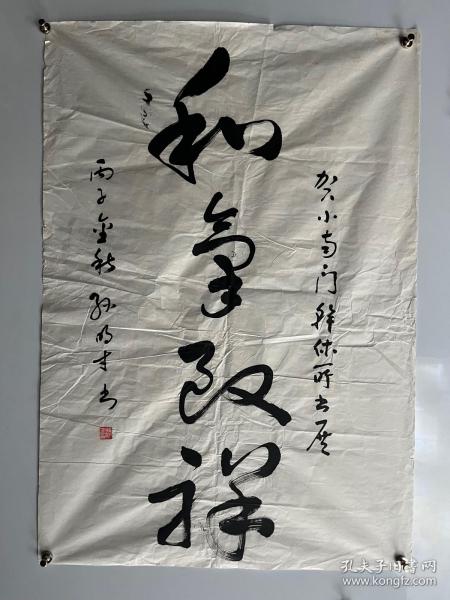 贺小南门干休所书展
和气致祥
丙子金秋孙明才书
孔夫子旧书网
www.kongfz.com